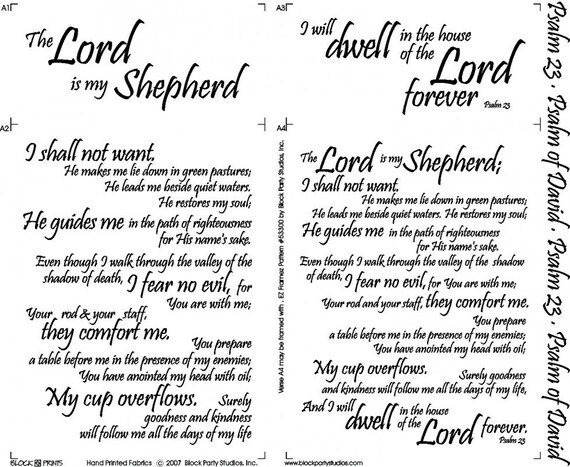 A1
The Lord
is my Shepherd
A3
I will dwell in the house
of the Lord
forever
Psalm 23
A2
I shall not want,
He makes me lie down in green pastures;
He leads me beside quiet waters.
He restores my soul;
He guides me in the path of righteousness
for His name's sake.
Even though I walk through the valley of the
shadow of death, I fear no evil, for
You are with me;
Your rod & your staff,
they comfort me.
You prepare
a table before me in the presence of my enemies;
You have anointed my head with oil;
My cup overflows. Surely
goodness and kindness
will follow me all the days of my life
A4
The Lord is my Shepherd;
I shall not want,
He makes me lie down in green pastures;
He leads me beside quiet waters. He restores my soul;
He guides me in the path of righteousness
for His name's sake.
Even though I walk through the valley of the shadow
of death, I fear no evil, for You are with me;
Your rod and your staff, they comfort me.
You prepare
a table before me in the presence of my enemies;
You have anointed my head with oil;
My cup overflows. Surely goodness
and kindness will follow me all the days of my life,
And I will dwell in the house
of the Lord forever.
Psalm 23
Verse A4 may be framed with . EZ Framez Pattern #53300 by Block Party Studios, Inc.
Psalm 23 · Psalm of David · Psalm 23 · Psalm of David
BLOCK PRINTS Hand Printed Fabrics © 2007 Block Party Studios, Inc. www.blockpartystudios.com